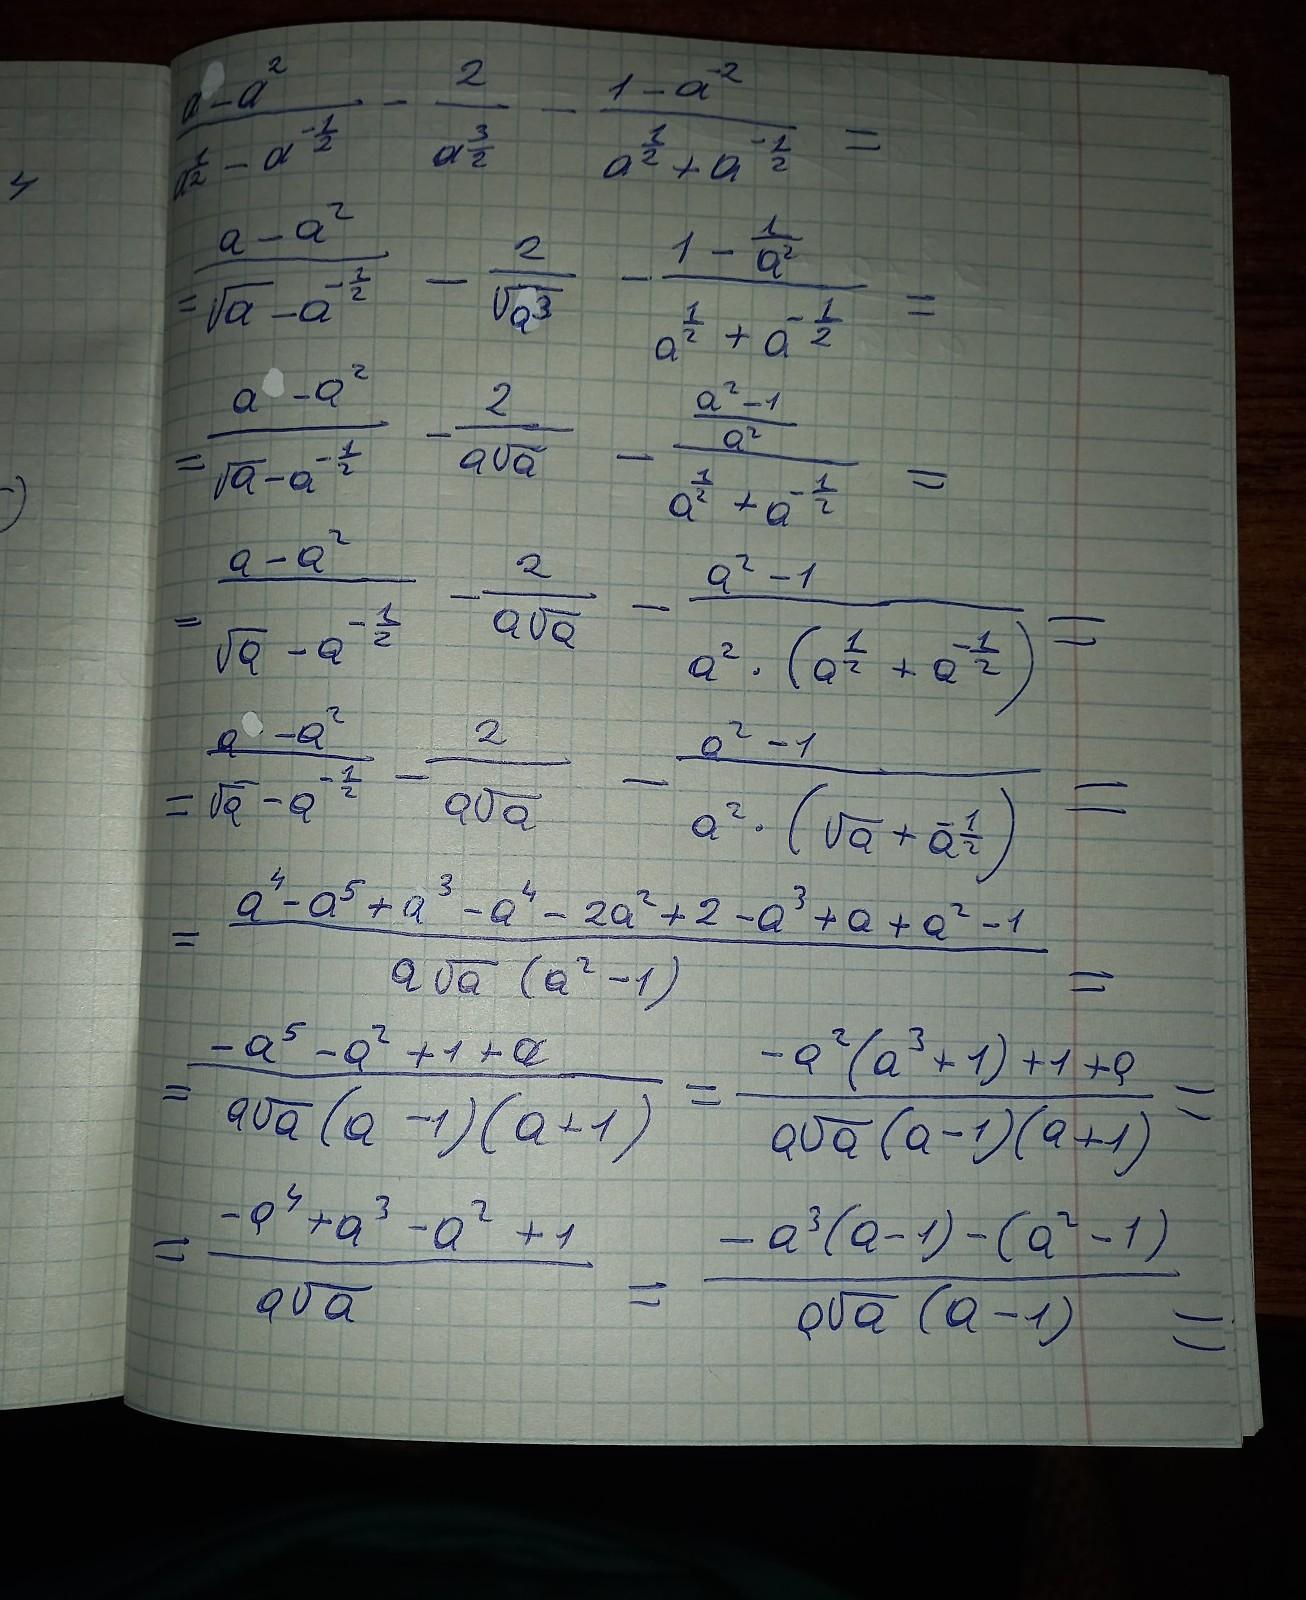 (a - a^2)/(a^(1/2) - a^(-1/2)) - 2/a^(3/2) - (1 - a^(-2))/(a^(1/2) + a^(-1/2)) =
= (a - a^2)/(√a - a^(-1/2)) - 2/√(a^3) - (1 - 1/a^2)/(a^(1/2) + a^(-1/2)) =
= (a - a^2)/(√a - a^(-1/2)) - 2/(a√a) - ((a^2 - 1)/a^2)/(a^(1/2) + a^(-1/2)) =
= (a - a^2)/(√a - a^(-1/2)) - 2/(a√a) - (a^2 - 1)/(a^2 · (a^(1/2) + a^(-1/2))) =
= (a - a^2)/(√a - a^(-1/2)) - 2/(a√a) - (a^2 - 1)/(a^2 · (√a + a^(-1/2))) =
= (a^4 - a^5 + a^3 - a^4 - 2a^2 + 2 - a^3 + a + a^2 - 1)/(a√a (a^2 - 1)) =
= (-a^5 - a^2 + 1 + a)/(a√a (a - 1)(a + 1)) = (-a^2(a^3 + 1) + 1 + a)/(a√a (a - 1)(a + 1)) =
= (-a^4 + a^3 - a^2 + 1)/(a√a) = (-a^3(a - 1) - (a^2 - 1))/(a√a (a - 1)) =